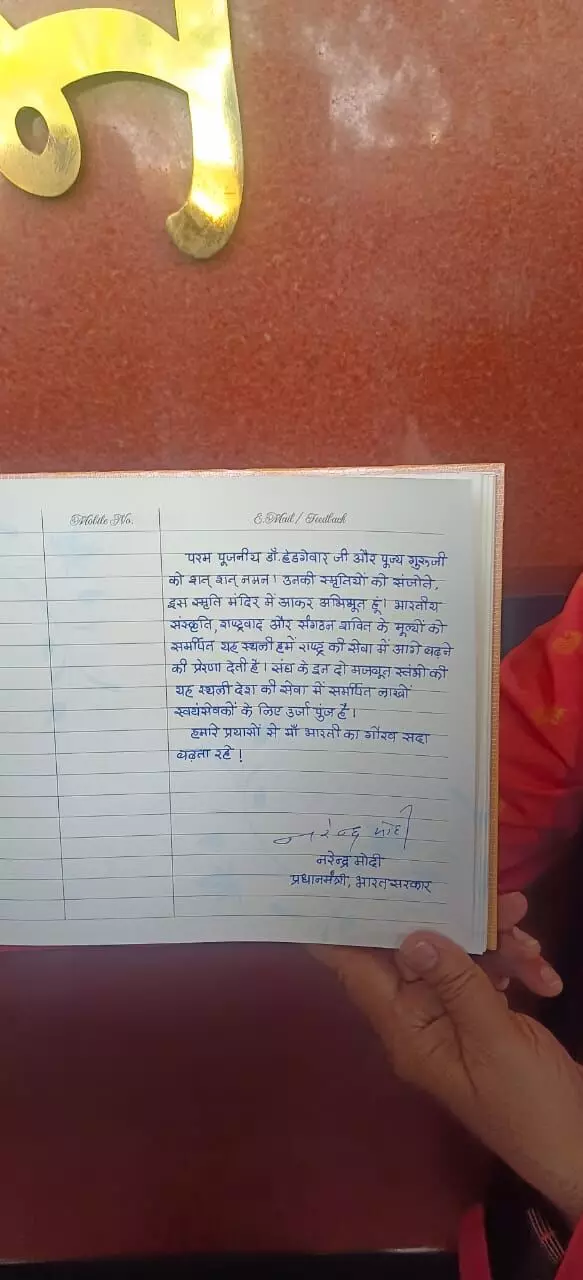 Mobile No.
E.Mail / Feedback
परम पूजनीय डॉ. हेडगेवार जी और पूज्य गुरुजी
को शत् शत् नमन। उनकी स्मृतियों को संजोते,
इस स्मृति मंदिर में आकर अभिभूत हूं। भारतीय
संस्कृति, राष्ट्रवाद और संगठन शक्ति के मूल्यों को
समर्पित यह स्थली हमें राष्ट्र की सेवा में आगे बढ़ने
की प्रेरणा देती है। संघ के इन दो मजबूत स्तंभों की
यह स्थली देश की सेवा में समर्पित लाखों
स्वयंसेवकों के लिए उर्जा पुंज है।
हमारे प्रयासों से माँ भारती का गौरव सदा
बढ़ता रहे!
नरेन्द्र मोदी
नरेन्द्र मोदी
प्रधानमंत्री, भारत सरकार